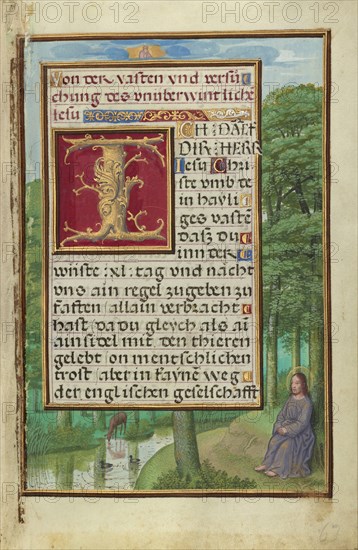 Von der vasten vnd versu
chung des vnüberwintliche
iesu
ICH DAĒK
DIR HERR
Iesu Chri
ste vmb te
in hayli
ges vastē
dasz du
inn der
wüste .xl. tag vnd nacht
vns ain regel zugeben zu
fasten allain verbracht
hast da du gleych als ai
ainsidel mit den thieren
gelebt on mentschlichen
trost aber in kayne weg
der englischen geselschafft